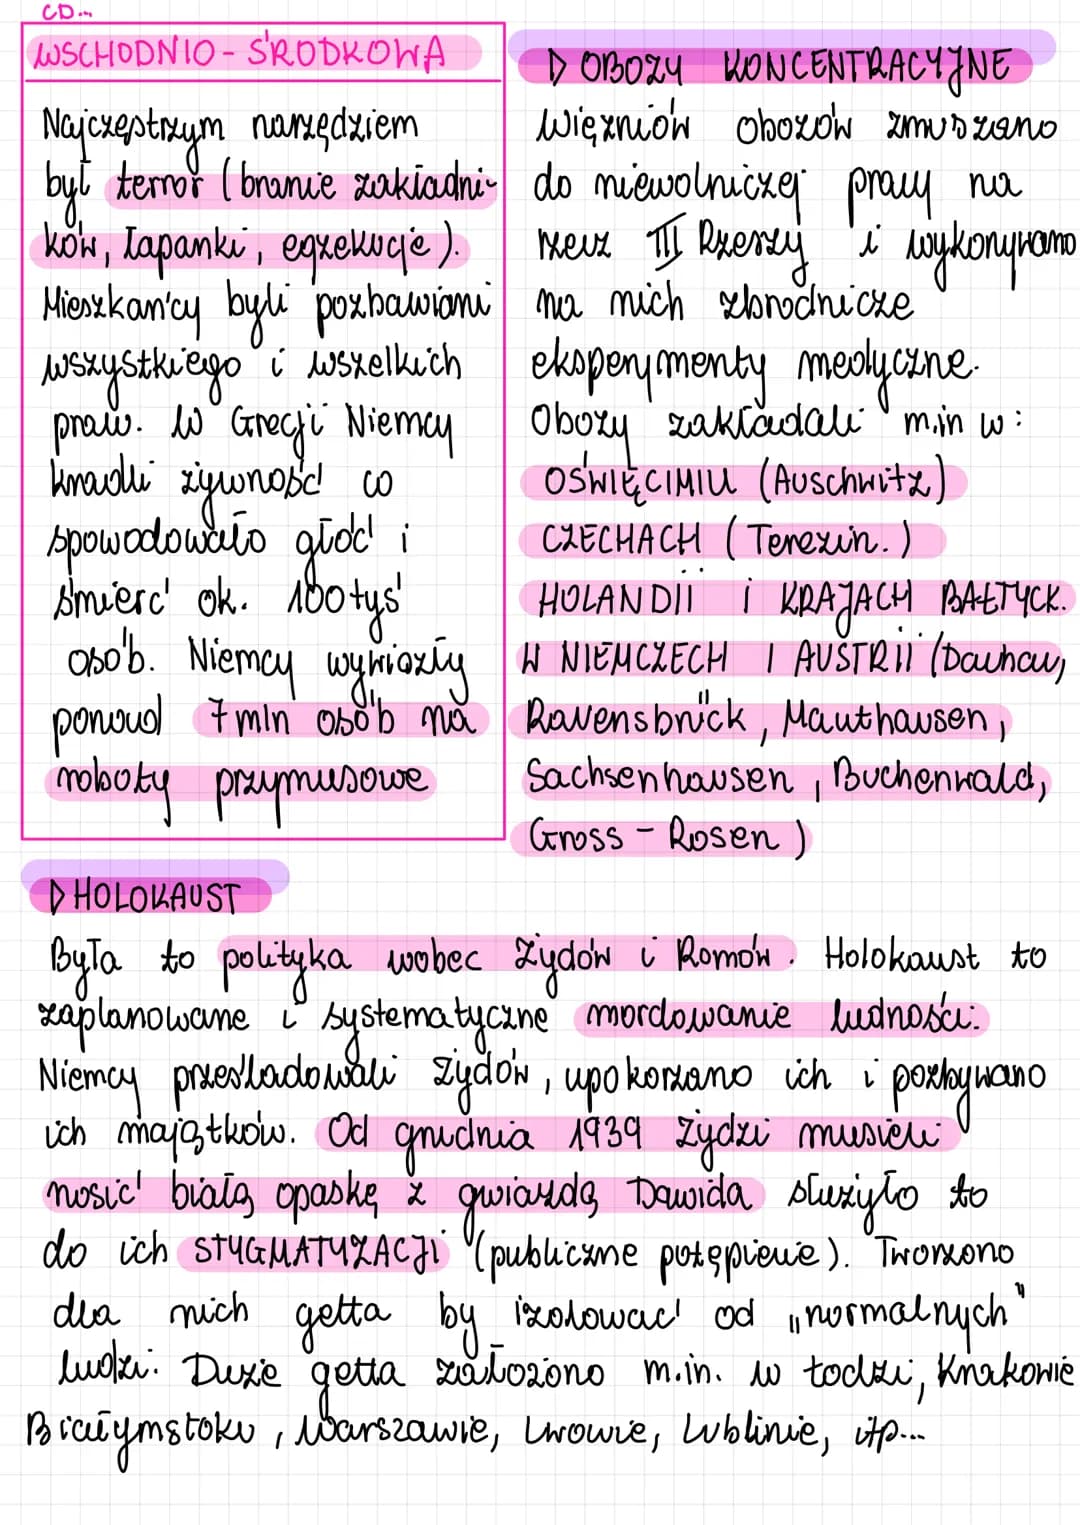 CD...
WSCHODNIO - ŚRODKOWA
Najczęstrzym narzędziem
był terror (branie zakładni-
ków, łapanki, egzekucje).
Mieszkańcy byli pozbawiani
wszystkiego i wszelkich
praw. W Grecji Niemcy
kradli żywność co
spowodowało głód i
śmierć ok. 100 tys
osób. Niemcy wywiozły
ponad 7 mln osób na
roboty przymusowe
▷ OBOZY KONCENTRACYJNE
Więźniów obozów zmuszano
do niewolniczej pracy na
rzecz III Rzeszy i wykonywano
na nich zbrodnicze
eksperymenty medyczne.
Obozy zakładali m.in w:
OŚWIĘCIMIU (Auschwitz)
CZECHACH (Terezin.)
HOLANDII i KRAJACH BAŁTYCK.
W NIEMCZECH I AUSTRII (Dachau,
Ravensbrück, Mauthausen,
Sachsenhausen, Buchenwald,
Gross - Rosen)
▷ HOLOKAUST
Była to polityka wobec Żydów i Romów. Holokaust to
zaplanowane i systematyczne mordowanie ludności.
Niemcy prześladowali Żydów, upokorzano ich i pozbywano
ich majątków. Od grudnia 1939 Żydzi musieli
nosić białą opaskę z gwiazdą Dawida służyło to
do ich STYGMATYZACJI (publiczne potępienie). Tworzono
dla nich getta by izolować od „normalnych"
ludzi. Duże getta założono m.in. w Łodzi, Krakowie
Białymstoku, Warszawie, Lwowie, Lublinie, itp...